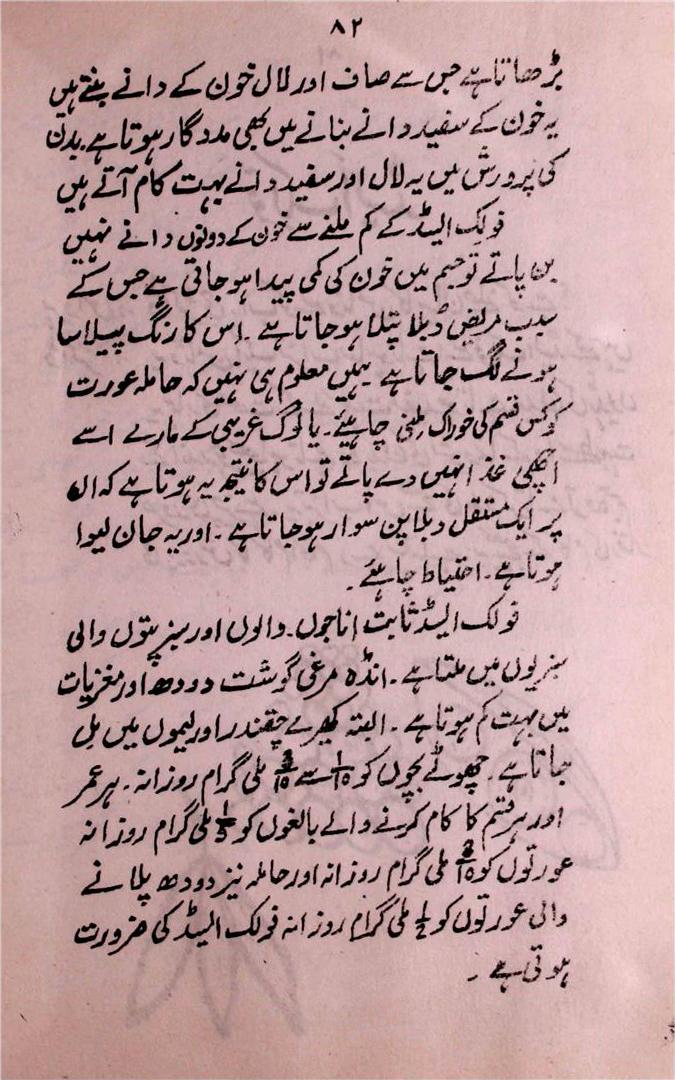 ۸۲
بڑھاتا ہے جس سے صاف اور لال خون کے دانے بنتے ہیں
یہ خون کے سفید دانے بنانے میں بھی مددگار ہوتا ہے۔ بدن
کی پرورش میں یہ لال اور سفید دانے بہت کام آتے ہیں
فولک ایسڈ کے کم ملنے سے خون کے دونوں دانے نہیں
بن پاتے تو جسم میں خون کی کمی پیدا ہو جاتی ہے جس کے
سبب مریض دُبلا پتلا ہو جاتا ہے۔ اس کا رنگ پیلا سا
ہونے لگ جاتا ہے ہمیں معلوم ہی نہیں کہ حاملہ عورت
کو کس قسم کی خوراک ملنی چاہیئے۔ یا لوگ غریبی کے مارے اسے
اچھی غذا نہیں دے پاتے تو اس کا نتیجہ یہ ہوتا ہے کہ ان
پر ایک مستقل دبلا پن سوار ہو جاتا ہے۔ اور یہ جان لیوا
ہوتا ہے۔ احتیاط چاہئے۔
فولک ایسڈ ثابت اناجوں۔ دالوں اور سبز پتوں والی
سبزیوں میں ملتا ہے۔ انڈہ مرغی گوشت دودھ اور مغزیات
میں بہت کم ہوتا ہے۔ البتہ کھیرے چقندر اور لیموں میں مِل
جاتا ہے۔ چھوٹے بچوں کو ۱/۱۵ سے ۲/۱۵ ملی گرام روزانہ۔ ہر عمر
اور ہر قسم کا کام کرنے والے بالغوں کو ۱/۵ ملی گرام روزانہ
عورتوں کو ۲/۱۵ ملی گرام روزانہ اور حاملہ نیز دودھ پلانے
والی عورتوں کو ۱/۲ ملی گرام روزانہ فولک ایسڈ کی ضرورت
ہوتی ہے۔